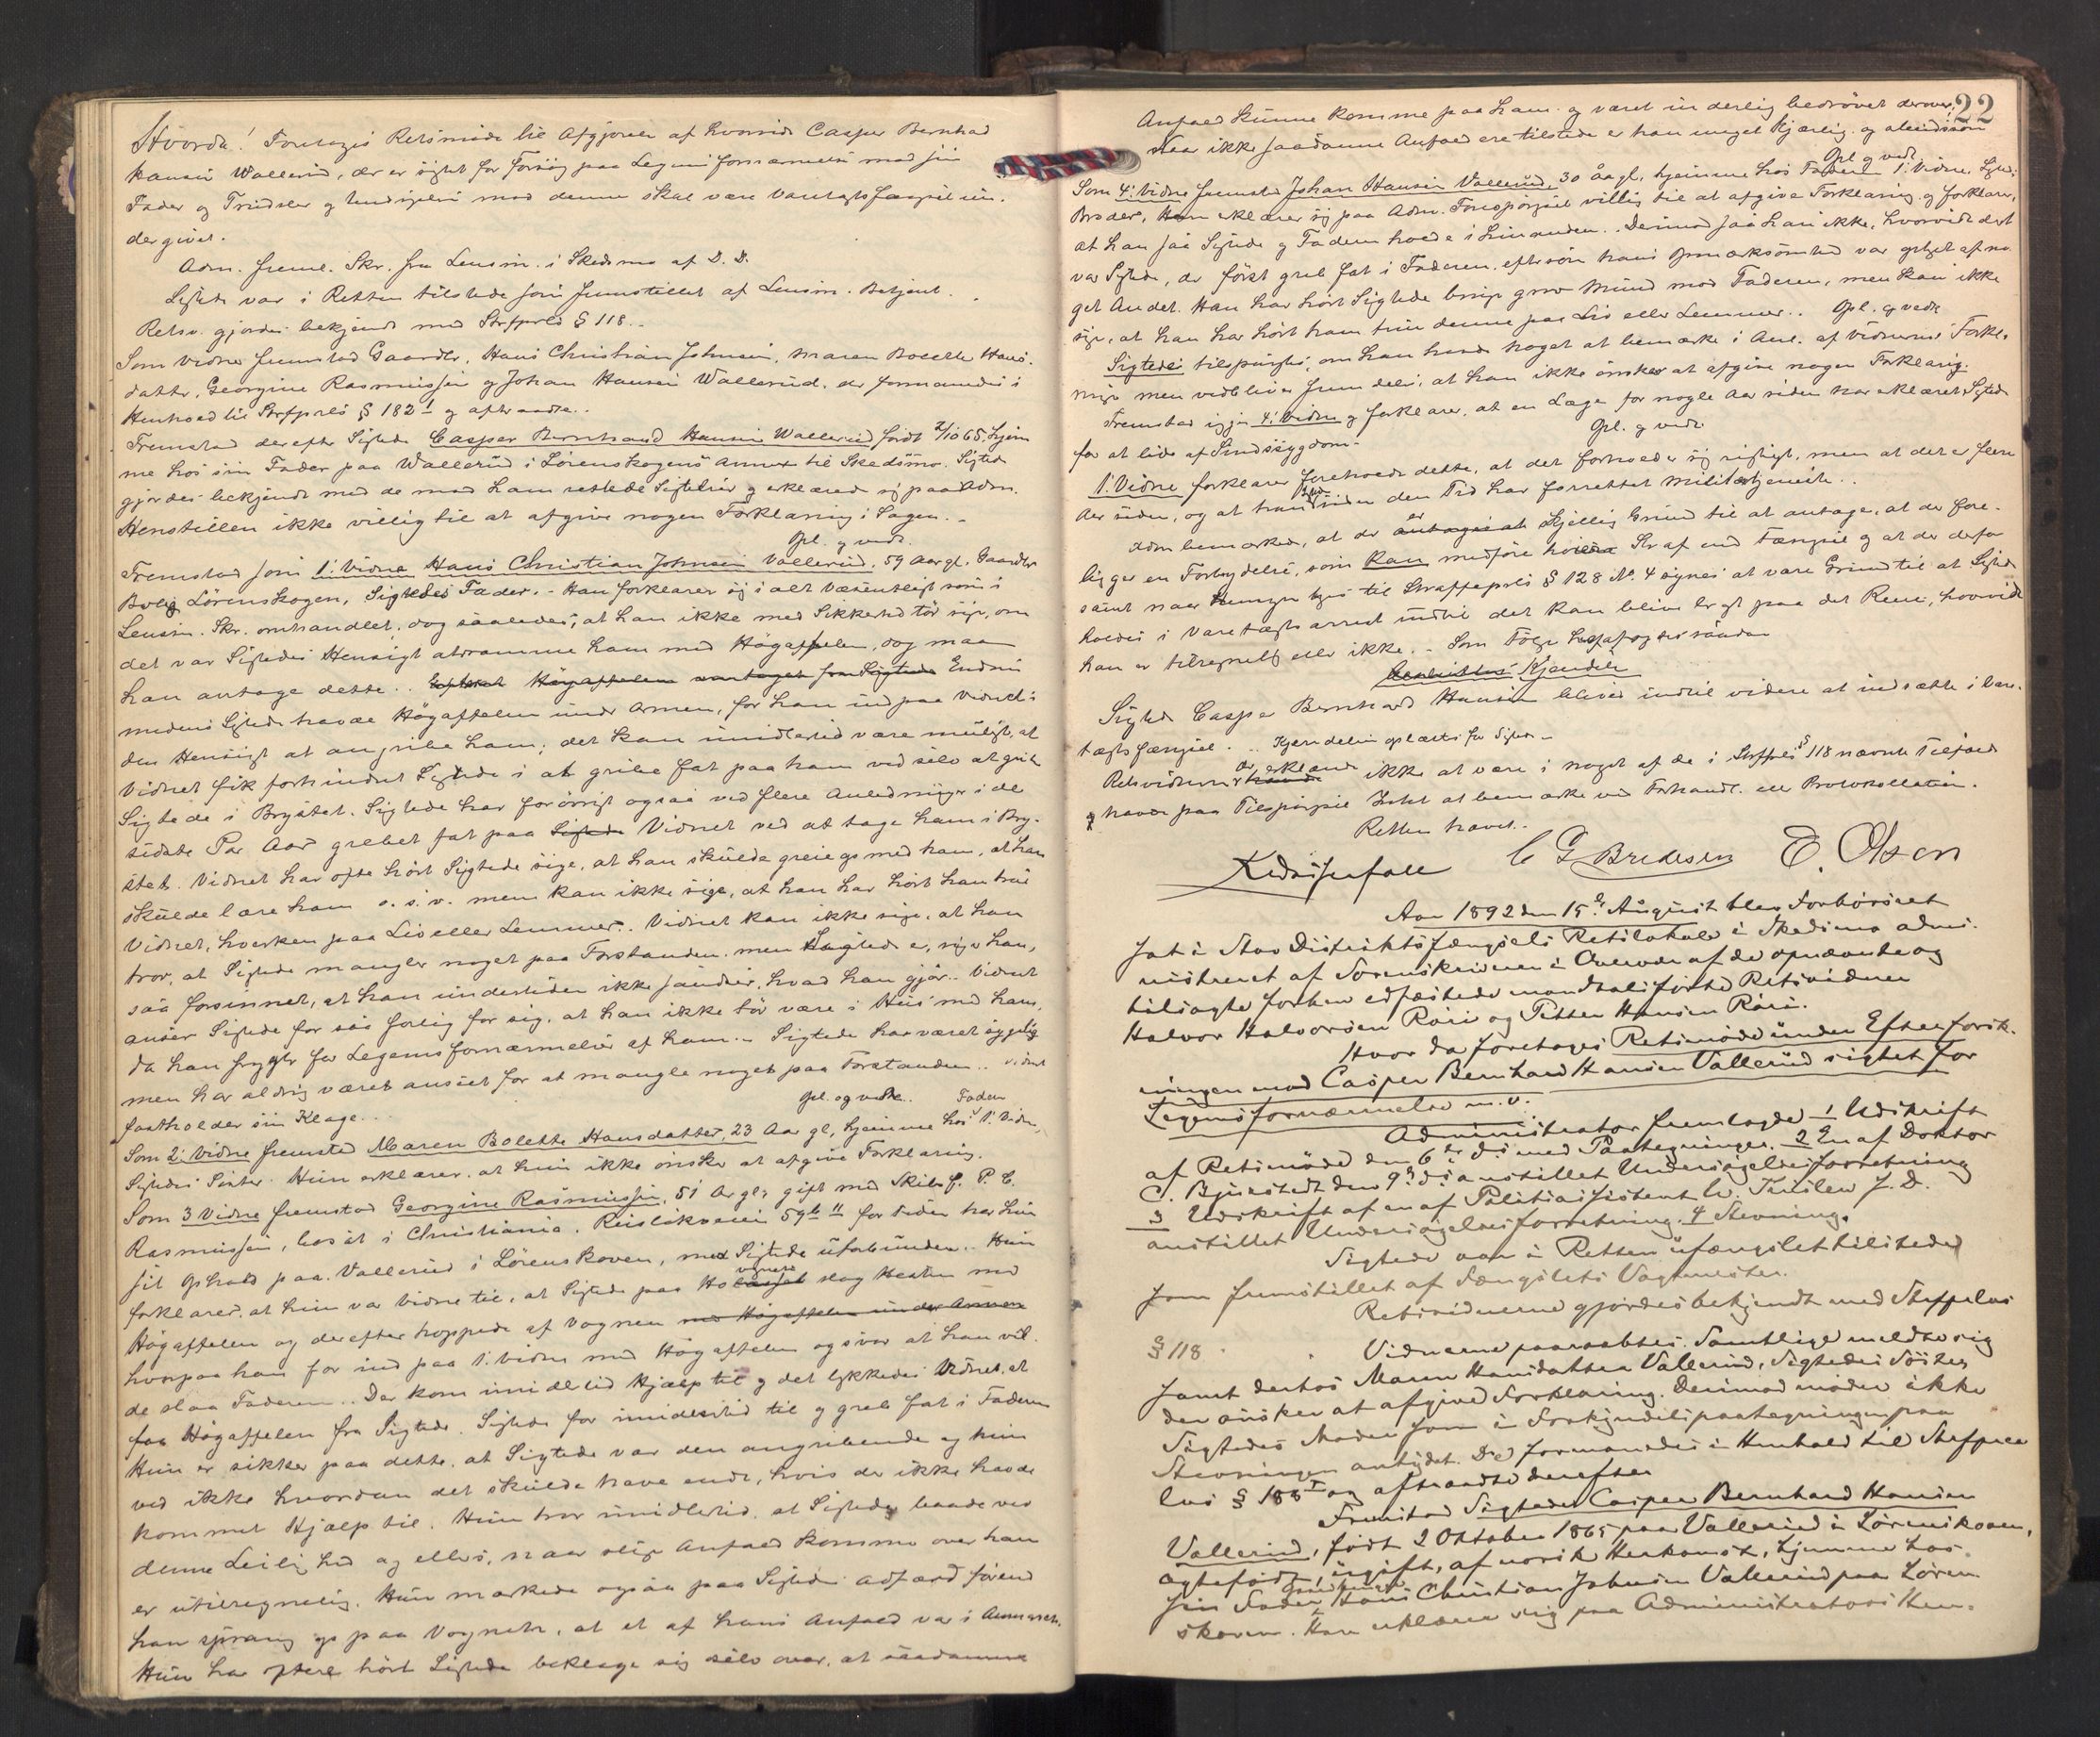 Hvorda! Foretoges Retsmøde til Afgjørelse af hvorvidt Casper Bernhard
Hansen Wallerud, der er sigtet for Forsøg paa Legemsfornærmelse mod sin
Fader og Trudsler mod denne skal være Varetægtsfængsel un-
dergivet.
Adm. freml. Skr. fra Lensm. i Skedsmo af D. D.
Sigtede var i Retten tilstede som fremstillet af Lensm. Betjent.
Retsv. gjordes bekjendt med Strfprls § 118.
Som Vidner fremstod Gaardbr. Hans Christian Johnsen, Maren Bolette Hans-
datter, Georgine Rasmussen og Johan Hansen Wallerud, der formanedes i
Henhold til Strfprls § 182 1 og aftraadte.
Fremstod derefter Sigtede Casper Bernhard Hansen Wallerud født 2/10 65, hjem-
me hos sin Fader paa Wallerud i Lørenskogens Annex til Skedsmo. Sigtede
gjordes bekjendt med de mod ham rettede Sigtelser og erklærede sig paa Adm.
Henstillen ikke villig til at afgive nogen Forklaring i Sagen.
Opl. og vedt.
Fremstod som 1. Vidne Hans Christian Johnsen Vallerud, 59 Aar gl. Gaardbr.
Bolig Lørenskogen, Sigtedes Fader. - Han forklarer sig i alt Væsentligt som i
Lensm. Skr. omhandlet, dog saaledes, at han ikke med Sikkerhed tør sige, om
det var Sigtedes Hensigt at ramme ham med Høgaffelen, dog maa
han antage dette. Høgaffelen fra Sigtede Endnu
medens Sigtede havde Høgaffelen under Armen, før han ind paa Vidnet i
den Hensigt at angribe ham; det kan imidlertid være muligt, at
Vidnet fik forhindret Sigtede i at gribe fat paa ham ved selv at gribe
Sigtede i Brystet. Sigtede har forøvrigt ogsaa ved flere Anledninger i de
sidste Par Aar grebet fat paa Sigtede Vidnet ved at tage ham i Bry-
stet. Vidnet har ofte hørt Sigtede sige, at han skulde greie op med ham, at han
skulde lære ham o. s. v. men kan ikke sige, at han har hørt ham true
Vidnet, hverken paa Liv eller Lemmer. Vidnet kan ikke sige, at han
tror, at Sigtede mangler noget paa Forstanden, men Sigtede er, siger han,
saa forsinnet, at han undertiden ikke sandser, hvad han gjør. Vidnet
anser Sigtede for saa farlig for sig, at han ikke tør være i Hus med ham,
da han frygter for Legemsfornærmelser af ham. - Sigtede har været sygelig
men har aldrig været anseet for at mangle noget paa Forstanden. Vidnet
fastholder sin Klage.
Opl. og vedt. Faderen
Som 2. Vidne fremstod Maren Bolette Hansdatter, 23 Aar gl, hjemme hos 1. Vidne,
Sigtedes Søster. Hun erklærer, at hun ikke ønsker at afgive Forklaring.
Som 3 Vidne fremstod Georgine Rasmussen, 51 Ar gl; gift med Skibsf. P. C.
Rasmussen, bosat i Christiania. For siden har hun
sit Ophold paa Vallerud i Lørenskoven, med Sigtede uforbunden. Hun
forklarer, at hun var Vidne til, at Sigtede paa Høvognen slog Hesten med
Høgaffelen og derefter hoppede af Vognen med Høgaffelen under Armen
hvorpaa han for ind paa 1. Vidne med Høgaffelen og svor at han vil-
de slaa Faderen. Der kom imidlertid Hjælp til og det lykkedes Vidnet at
faa Høgaffelen fra Sigtede. Sigtede for imidlertid til og greb fat i Faderen
Hun er sikker paa dette, at Sigtede var den angribende og hun
ved ikke hvordan det skulde have endt, hvis der ikke havde
kommet Hjælp til. Hun tror imidlertid, at Sigtede baade ved
denne Leilighed og ellers, naar slige Anfald kommer over ham
er utilregnelig. Hun mærkede ogsaa paa Sigtedes Adfærd førend
han sprang op paa Vognen, at et af hans Anfald var i Anmarch.
Hun har oftere hørt Sigtede beklage sig selv over, at saadanne
22
Anfald kunne komme paa ham og været inderlig bedrøvet derover.
Naar ikke saadanne Anfald ere tilstede er han meget kjærlig og
Opl. og vedt.
Som 4. Vidne fremstod Johan Hansen Vallerud, 30 Aar gl, hjemme hos Faderen 1. Vidne, Sigt.
Broder, Han erklærer sig paa Adm. Forespørgsel villig til at afgive Forklaring og forklarer,
at han saa Sigtede og Faderen holde i hinanden. Derimod saa han ikke, hvorvidt det
var Sigtede, der først greb fat i Faderen, eftersom hans Opmærksomhed var optaget af no-
get Andet. Han har hørt Sigtede bruge grov Mund mod Faderen, men kan ikke
sige, at han har hørt ham true denne paa Liv eller Lemmer. Opl. og vedt.
Sigtede tilspurgtes, om han havde noget at bemærke i Anl. af Vidnernes Forkl.
men vedbliver fremdeles, at han ikke ønsker at afgive nogen Forklaring.
Fremstod igjen 4. Vidne og forklarer, at en Læge for nogle Aar siden har erklæret Sigtede
for at lide af Sindssygdom. Opl. og vedt.
1. Vidne forklarer foreholdt dette, at det forholder sig rigtigt, men at det er flere
Aar siden, og at han siden den Tid har forrettet Militærtjeneste.
Adm bemærkede, at der er skjellig Grund til at antage, at der fore-
ligger en Forbrydelse, som kan medføre høiere Straf end Fængsel og at der derfor
samt naar Hensyn tages til Straffeprls § 128 No. 4 synes at være Grund til at Sigtede
holdes i Varetægtsarrest indtil det kan blive bragt paa det Rene, hvorvidt
han er tilregnelig eller ikke. - Som Følge heraf afsagdes saadan
Kjendelse
Sigtede Casper Bernhard Hansen bliver indtil videre at indsætte i Vare-
tægtsfængsel. - Kjendelsen oplæstes for Sigtede -
Retsvidnerne erklærede ikke at være i noget af de i Strfprls § 118 nævnte Tilfælde
og havde paa Tilspørgsel Intet at bemærke ved Forhandl. eller Protokollationen.
Retten hævet.
C G Bredesen E. Olsen
Aar 1892 den 15de August blev Forhørsret
sat i Stav Distriktsfængsels Retslokale i Skedsmo admi-
nistreret af Sorenskriveren i Overvær af de opnævnte og
tilsagte forhen edfæstede mandtalsførte Retsvidner
Halvor Halvorsen Røri og Petter Hansen Røri.
Hvor da foretoges Retsmøde under Efterforsk-
ningen mod Casper Bernhard Hansen Vallerud sigtet for
Legemsfornærmelse m.v.
Administrator fremlagde 1 Udskrift
af Retsmøde den 6te ds med Paategninger. 2 En af Doktor
C. Bjørnstedt den 9de ds anstillet Undersøgelsesforretning
3 Udskrift af en af Politiassistent
anstillet Undersøgelsesforretning. 4 Stevning.
Sigtede var i Retten ufængslet tilstede
som fremstillet af Fængslets Vagtmester.
Retsvidnerne gjordes bekjendt med Strffpelovs
§ 118. Vidnerne paaraabtes. Samtlige meldte sig
samt derhos Maren Hansdatter Vallerud, Sigtedes Søster
der ønsker at afgive Forklaring. Derimod møder ikke
Sigtedes Moder som i Forkyndelsespaategningen paa
Stevningen antydet. De formanedes i Henhold til Strfproc
lovs § 188 1 og aftraadte derefter
Fremstod Sigtede Casper Bernhard Hansen
Vallerud, født 2 Oktober 1865 paa Vallerud i Lørenskoven,
ægtefødt, ugift, af norsk Herkomst, hjemme hos
sin Fader Hans Christian Johnsen Vallerud paa Løren-
skoven. Han erklærer sig paa Administrators Hen-